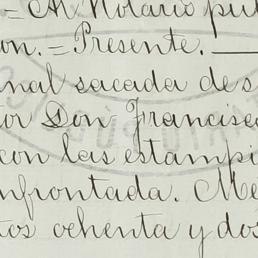 = Al Notario pú
on. = Presente. —
nal sacada de s
or Don Francisco
con las estampi
nfrontada. Me
tos ochenta y dos